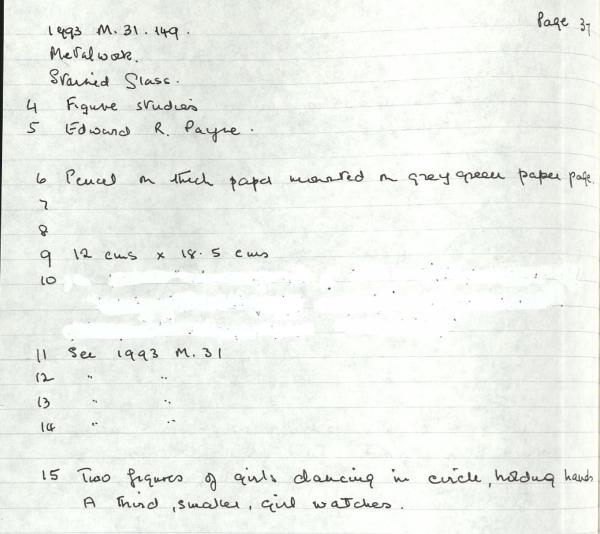 Page 37
1993 M. 31. 149.
Metalwork.
Stained Glass.
4 Figure studies
5 Edward R. Payne.
6 Pencil on thick paper mounted on grey green paper page.
7
8
9 12 cms x 18.5 cms
10
11 See 1993 M. 31
12 " "
13 " "
14 " "
15 Two figures of girls dancing in circle, holding hands
A third, smaller, girl watches.